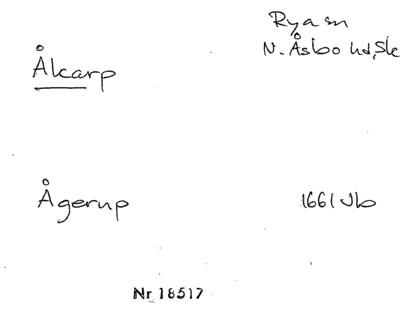 Rya sn
Ålcarp
N. Åsbo hd, Sk
Ågerup
1661 Jb
Nr 18517